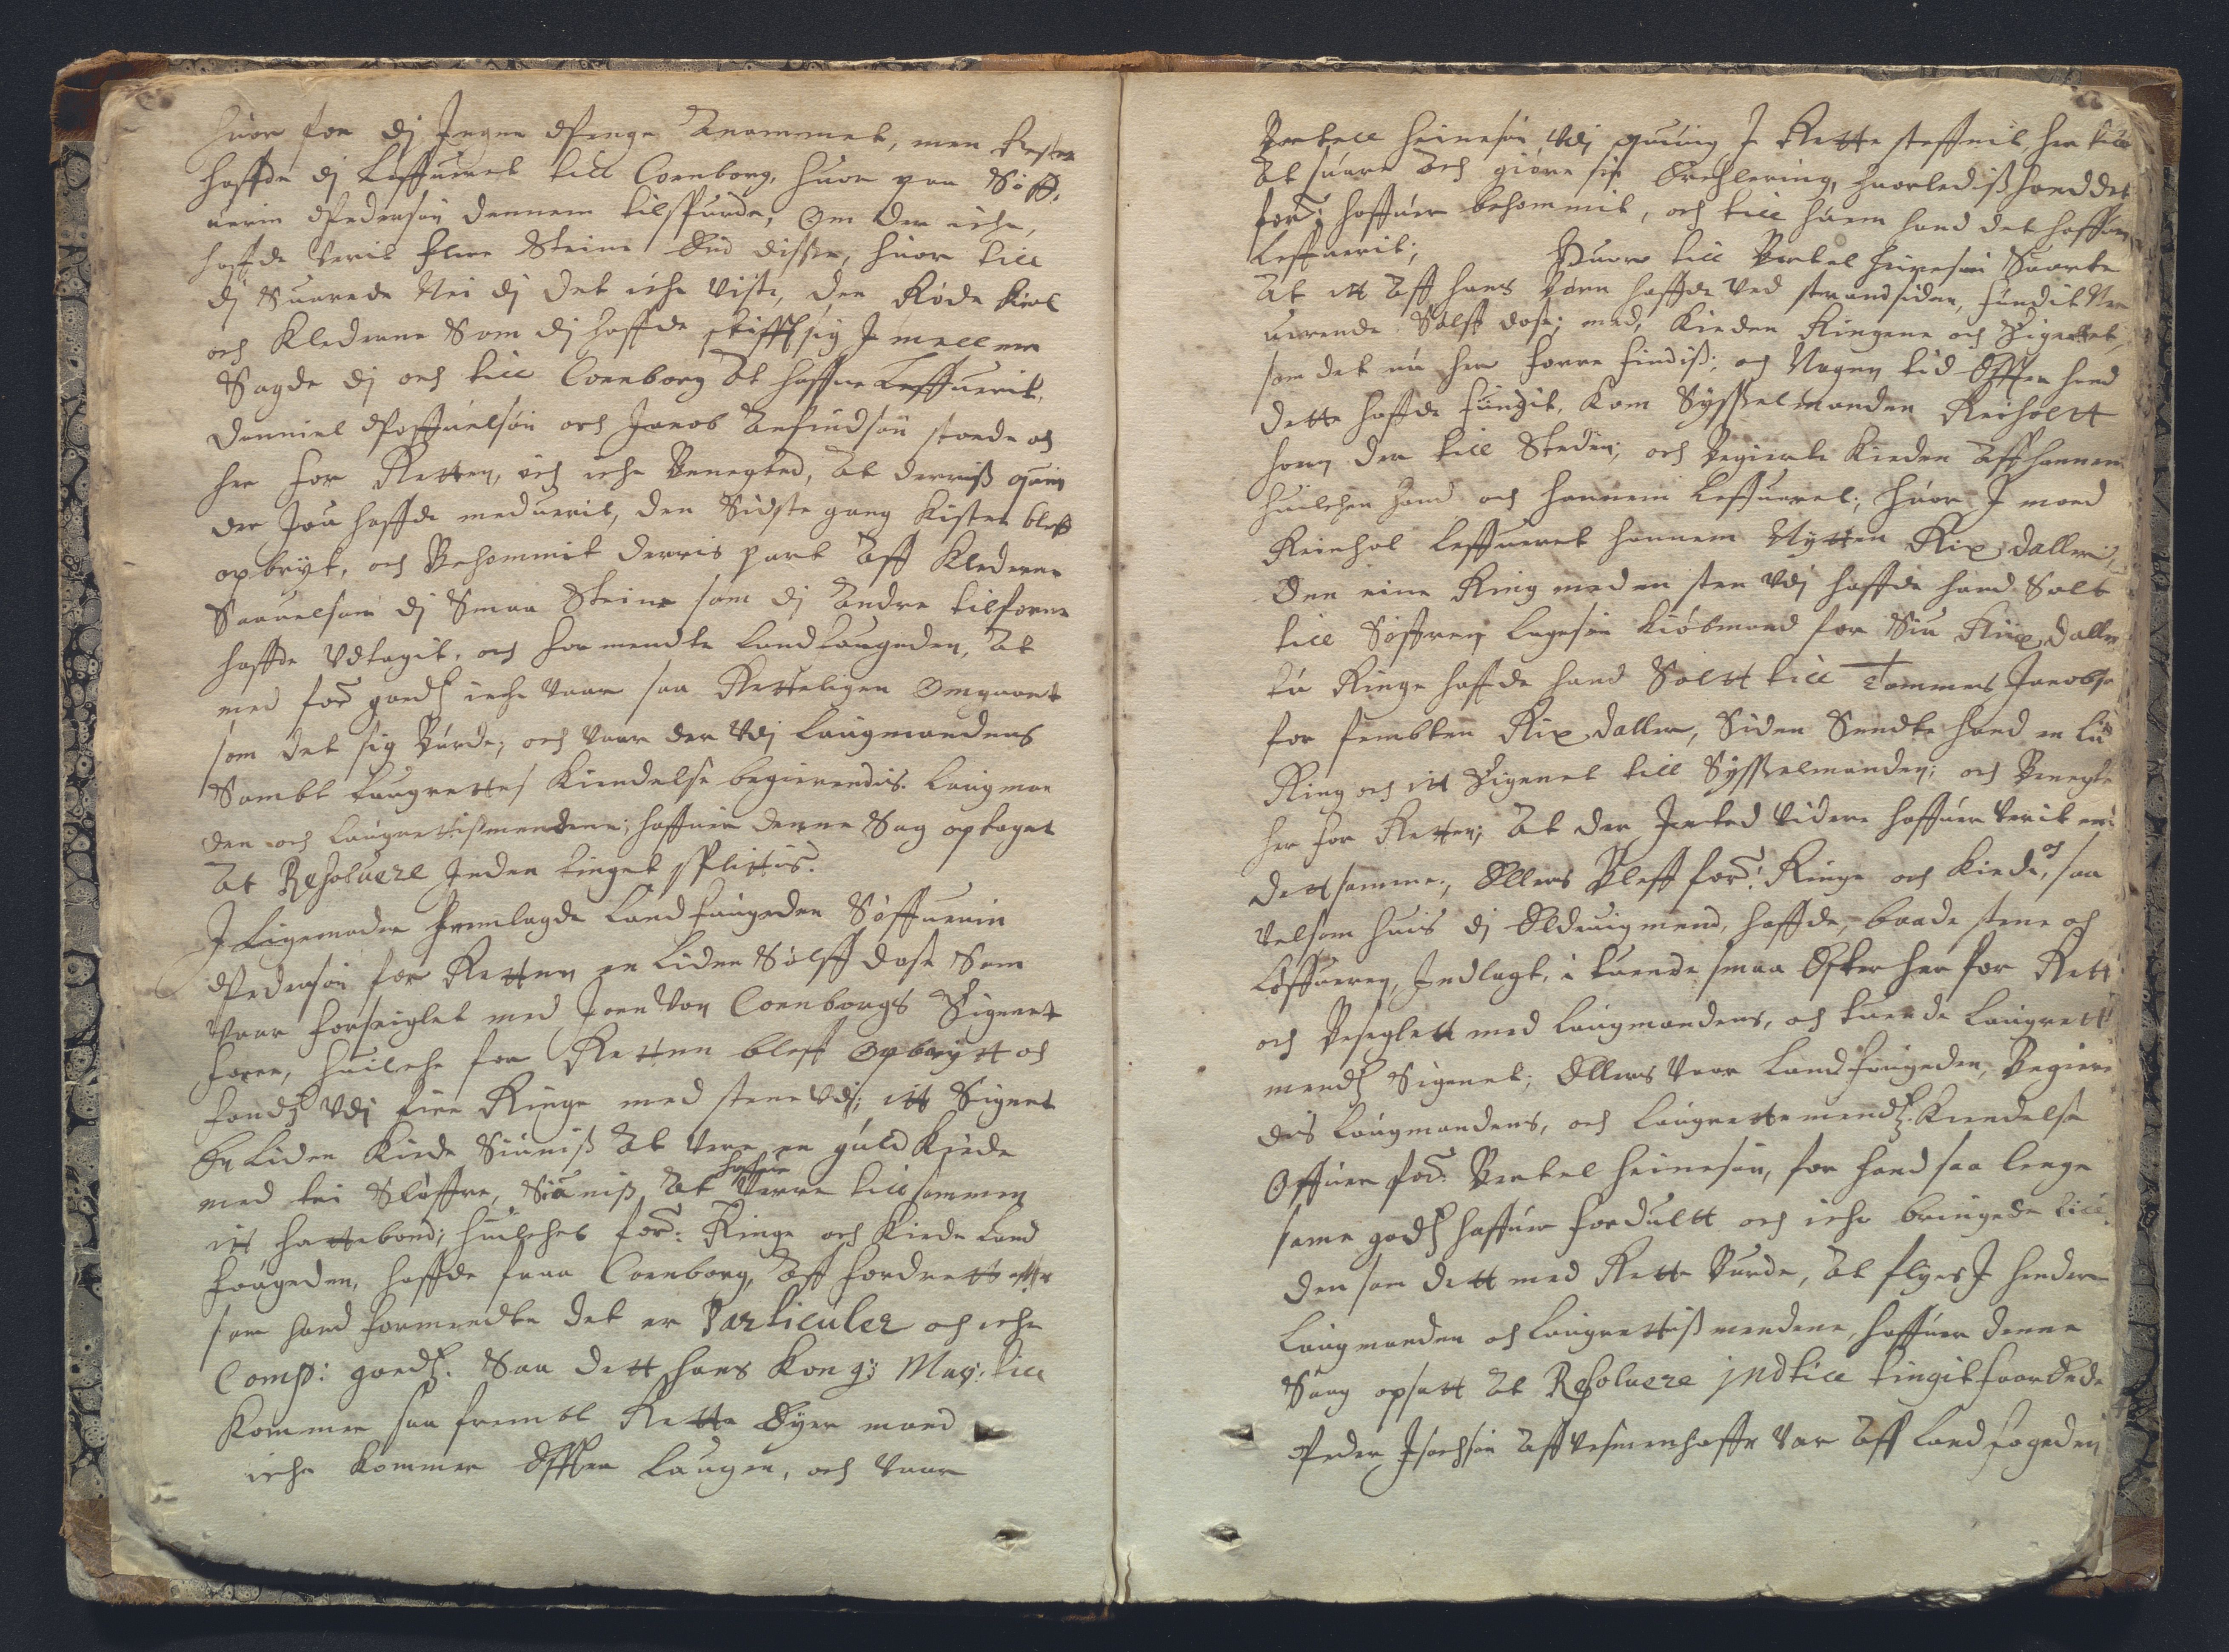 huor for dj Ingen Penge Anammet, men Resten
haffde dj Leffueret till Cornborg, huor paa Søff,
uerin Pedersøn dennem tilspurde, Om der iche,
haffde verit flere Steine End disse, huor till
dj Suarede Nei dj det iche viste, den Røde kiol
och Klederne Som dj haffde skifft sig I mellem
Sagde dj och till Cornborg At haffue Leffuerit,
Danniel Poffuelsøn och Jacob stoede och
her for Retten, och iche Benegted, At
der Jou haffde meduerit, den Sidste gang Kisten bleff
opbryt, och Bekommit derris part Aff Klederne
Saauelsom dj Smaa Steine som dj Andre tilforne
haffde Vdtagit, och formendte Landfougeden, At
med for: goeds iche vaar saa Retteligen Omgaaet
som det sig Burde; och vaar der Vdj Laugmandens
Sambt Laugrettes Kiendelse begierendis. Laugman
den och Laugrettismendene; haffuer denne Sag optaget
At Resoluere Inden tinget Splittis.
I Ligemaader fremlagde Landfougeden Søffuerin
Pedersøn for Retten en Liden Sølff dose Som
vaar forseiglet med Joen Von Cornborgs Signet
foren, huilche for Retten bleff Opbrytt och
fandz Vdj fire Ringe med stene Vdj; itt Signet
En Liden Kiede Siunis At vere en guld Kiede
med tei Sløffre, Siunis At haffue Verre till sammen
itt hattebond; huilches for: Ringe och Kiede Land
fougeden, haffde fraa Cornborg, Aff fordrett effter
som hand formendte det er Particuler och iche
Comp: goeds. Saa dett hans Kong: May: till
Kommer saa frembt Rette Eyer mand
iche Kommer Effter Laugen, och vaar
Bertell Heinesøn, Vdj I Rette steffnit, her till
At suare och giøre sin Erchlering, huorledis hand det
for: haffuer bekommit, och till huem hand det haffuer
Leffuerit; Huor till Bertel Heinesøn Suarte
At itt Aff hans Børn haffde Ved strandsiden, fundit Ner
uerende Sølff dose; med, Kieden Ringene och Signettet,
som det nu her forre findis; och Nogen tid Effter hand
dette haffde fungit, Kom Sysselmanden Reiholtt
hen der till Stedin; och Begierte Kieden Aff hannem
huilchen hand och hannem Leffueret; huor I moed
Reinhol Leffueret hannem Nytten Rix daller,
Den eine Ring med en sten Vdj haffde hand Solt
till Søffren Lagesøn Kiøbmand for Siu Rix daller
tu Ringe haffde hand Soltt till Tommes Jacobs
for fembten Rix daller, Siden Sendte hand en
Ring och itt Signet till Sysselmanden; och Benegte
her for Retten; At der Inted videre haffuer verit
dett samme, Ellers Bleff for: Ringe och Kiede, och saa
velsom huis dj mend, haffde, baade stene och
Løffueren, Indlagt, i tuende smaa Esker her for Rett
och Beseglett med Laugmandens, och tuende Laugrett
mends Signet; Ellers vaar Landfougeden, Begieren
dis Laugmandens, och Laugrettemends Kiendelse
Offuer for: Bertel Heinesøn, for hand saa lenge
same gods haffuer fordultt och iche bringede till
den som dett med Rette Burde, At flyes I henderne
Laugmanden och Laugrettismendene, haffuer denne
Saag opsatt At Resoluere indtill tingit
Peder Isachsøn Aff Vesmenhaffn var Aff Landfogeden